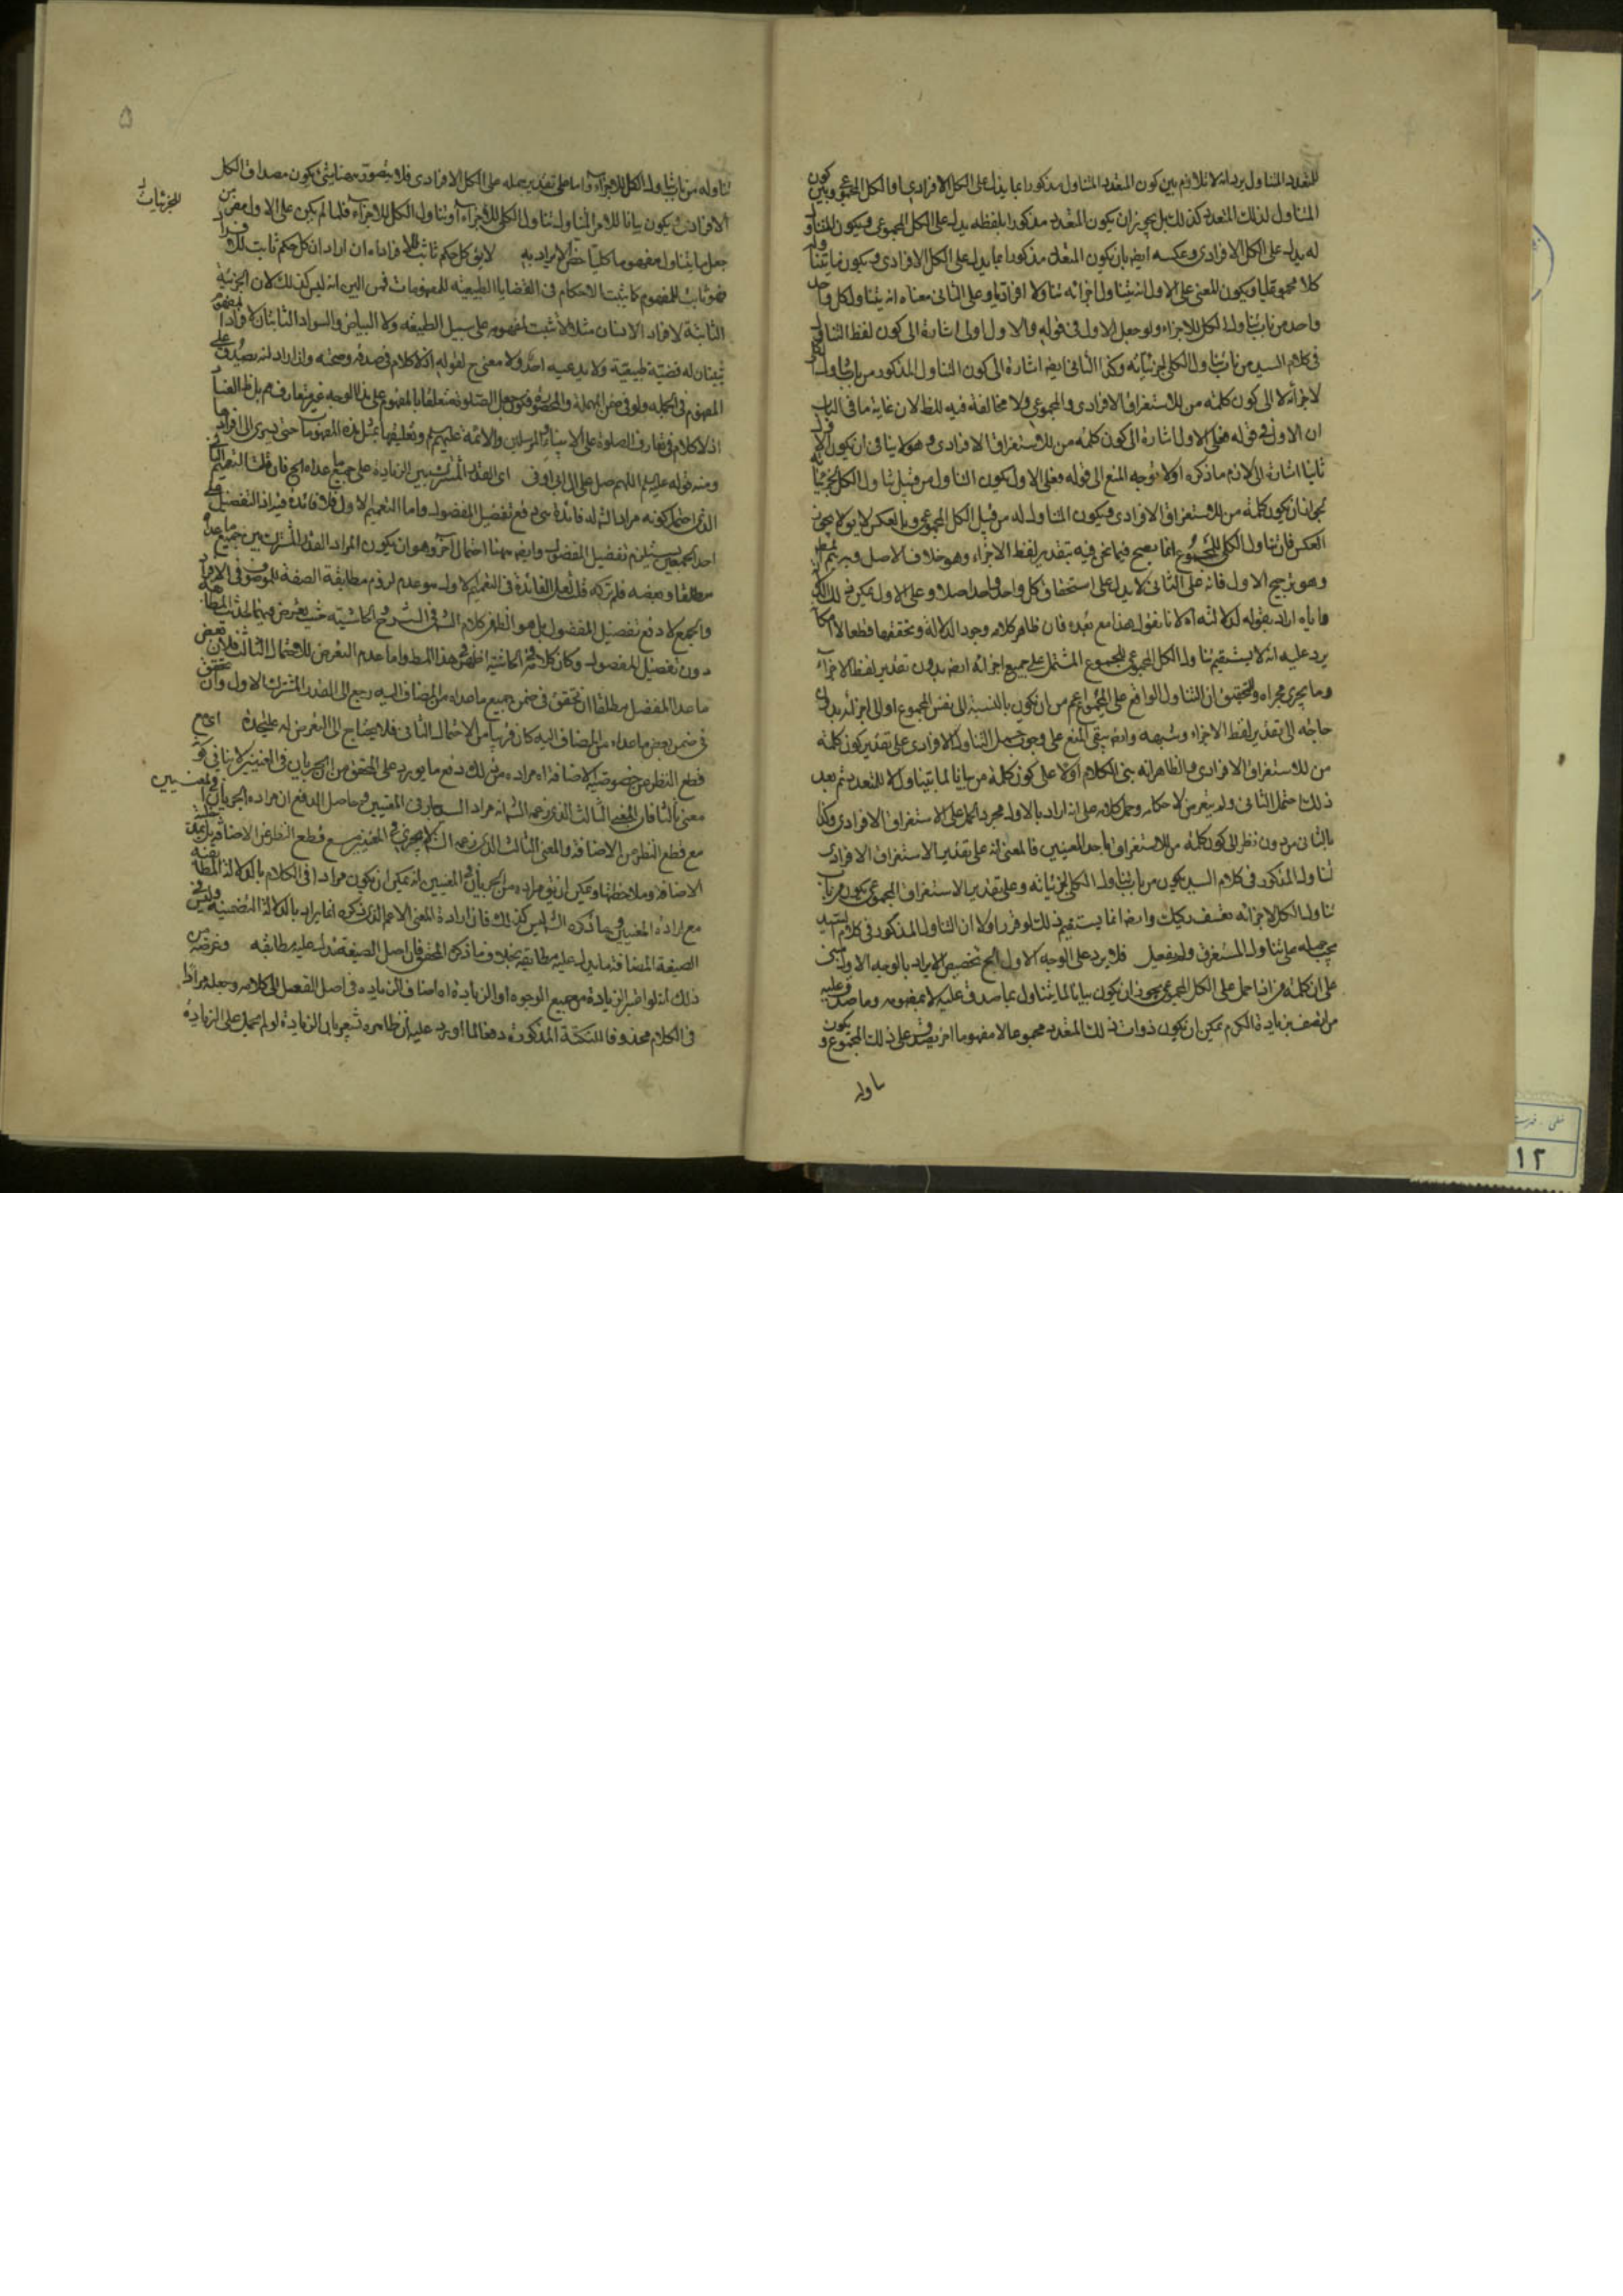 للمتعدد المتناول يرد انه لا تلازم بين كون المتعدد المتناول مذكورا بما يدل على الكل الافرادي او الكل المجموعي وبين كون
المتناول لذلك المتعدد كذلك بل يجوز ان يكون المتعدد مذكورا بلفظه يدل على الكل المجموعي ويكون المتناول
له يدل على الكل الافرادي وعكسه ايضا بان يكون المتعدد مذكورا بما يدل على الكل الافرادي ويكون ما يتناوله
كلا مجموعيا ويكون المعنى على الاول انه يتناول اجزائه تناولا افراديا وعلى الثاني معناه انه يتناول كل واحد
واحد من باب تناول الكل للاجزاء ولو جعل الاول في قوله والاول اولى اشارة الى كون لفظ التناول
في كلام السيد من باب تناول الكلي لجزئياته وكذا الثاني ايضا اشارة الى كون التناول المذكور من باب تناول الكل
لاجزائه لا الى كون كلمة من للاستغراق الافرادي والمجموعي ولا مخالفة فيه للظ لان غاية ما في الباب
ان الاول في قوله فعلى الاول اشارة الى كون كلمة من للاستغراق الافرادي وهو لا ينافي ان يكون الاول
ثانيا اشارة الى لازم ما ذكره اولا توجه المنع الى قوله فعلى الاول يكون التناول من قبيل تناول الكلي لجزئياته
لجواز ان يكون كلمة من للاستغراق الافرادي ويكون المتناول له من قبيل الكل المجموعي وبالعكس لا يق لا يجوز
العكس فان تناول الكلي للمجموع انما يصح فيما نحن فيه بتقدير لفظ الاجزاء وهو خلاف الاصل
وهو ترجيح الاول فانه على الثاني لا يدل على استحقاق كل واحد واحد اصلا وعلى الاول يمكن ذلك
ما يأباه اراد بقوله لدلالته اه لانا نقول هذا مع بعده فان ظاهر كلامه وجود الدلالة وتحققها قطعا لا امكانها
يرد عليه انه لا يستقيم تناول الكل المجموعي للمجموع المشتمل على جميع اجزائه ايضا بدون تقدير لفظ الاجزاء
وما يجري مجراه والتحقيق ان التناول الواقع على المجموع اعم من ان يكون بالنسبة الى نفس المجموع او الى اجزائه
حاجة الى تقدير لفظ الاجزاء وشبهه وايضا يبقى المنع على وجوب حمل التناول على الافرادي على تقدير كون كلمة
من للاستغراق الافرادي والظاهر انه بنى الكلام اولا على كون كلمة من بيانا لما يتناوله للمتعدد ثم بعد
ذلك احتمل الثاني ولم يتعرض لاحكامه وحمل كلامه على انه اراد بالاول مجرد الحمل على الاستغراق الافرادي وكذا
بالثاني من دون نظر الى كون كلمة من للاستغراق باحد المعنيين فالمعنى انه على تقدير الاستغراق الافرادي
تناول المذكور في كلام السيد يكون من باب تناول الكلي لجزئياته وعلى تقدير الاستغراق المجموعي يكون من باب
تناول الكل لاجزائه تعسف ركيك وايضا انما يستقيم ذلك لو قرر اولا ان التناول المذكور في كلام السيد
يجب حمله على تناول المستغرق ولم يفعل فلا يرد على الوجه الاول الخ تخصيص الايراد بالوجه الاول مبني
على ان كلمة من اذا حمل على الكل المجموعي يجوز ان يكون بيانا لما يتناول بما صدق عليه لا بمفهومه وما صدق عليه
من اتصف بزيادة الكرم يمكن ان يكون ذوات ذلك المتعدد مجموعا لا مفهوما اخر يصدق على ذلك المجموع ويكون
ناوله
۵
تناوله من باب تناول الكل للاجزاء واما على تقدير حمله على الكل الافرادي فلا يتصور هنا شيء يكون مصداق الكل
الافرادي ويكون بيانا للامر المتناول تناول الكلي للاجزاء او تناول الكل للاجزاء فلما لم يكن على الاول مفر من
للجزئيات
جعل ما يتناول مفهوما كليا خص الايراد به لا يق كل حكم ثابت للافراد اه ان اراد ان كل حكم ثابت للافراد
فهو ثابت للمفهوم كما يثبت الاحكام في القضايا الطبيعية للمفهومات فمن البين انه ليس كذلك لان الجزئية
الثابتة لافراد الانسان مثلا لا تثبت لمفهومه على سبيل الطبيعة ولا البياض والسواد الثابتان لافراد المفهوم
يثبتان له قضية طبيعية ولا يدعيه احد ولا معنى ح لقوله اذ لا كلام في صدقه وصحته وان اراد انه يصدق على
المفهوم في الجملة ولو في ضمن المهملة والمحصورة فكون جعل الصلوة متعلقا بالمفهوم على هذا الوجه غير متعارف مم بل ظ الفساد
اذ لا كلام في تعارف الصلوة على الانبياء والمرسلين والائمة عليهم السلم وتعليقها بمثل هذه المفهومات حتى يسري الى افرادها
ومنه قوله عليه السلم اللهم صل على آل ابي اوفى اي القدر المشترك بين الزيادة على جميع ما عداه الخ فان قلت التعميم الثاني
الذي احتمل كونه مراد الش له فائدة هي دفع تفضيل المفضول واما التعميم الاول فلا فائدة فيه اذ التفضيل على
احد الجميعين يستلزم تفضيل المفضول وايضا ههنا احتمال آخر وهو ان يكون المراد القدر المشترك بين جميع ما عداه
مطلقا وبعضه فلم تركه قلت لعل الفائدة في التعميم الاول هو عدم لزوم مطابقة الصفة للموصوف في الافراد
والجمع لا دفع تفضيل المفضول بل هو الظاهر كلام الش في الشرح والحاشية حيث تعرض فيهما لهذه المطابقة
دون تفضيل المفضول وكان كلامه في الحاشية اظهر في هذا المط واما عدم التعرض للاحتمال الثالث فلان بعض
ما عدا المفضل مطلقا ان تحقق في ضمن جميع ما عداه من المضاف اليه رجع الى القدر المشترك الاول وان تحقق
في ضمن بعض ما عداه من المضاف اليه كان قريبا من الاحتمال الثاني فلا يحتاج الى التعرض له على حدة اي مع
قطع النظر عن خصوصية الاضافة اه مراده من ذلك دفع ما يورد على المحقق من ان الجريان في المعنيين لا ينافي كونه
معنى ثالثا فان المعنى الثالث الذي زعمه الش انه مراد السيد جار في المعنيين وحاصل الدفع ان مراده الجريان في المعنيين
مع قطع النظر عن الاضافة والمعنى الثالث الذي زعمه الش لا يجري في المعنيين مع قطع النظر عن الاضافة
الاضافة وملاحظتها ويمكن ان يق مراده من الجريان في المعنيين انه يمكن ان يكون مرادا في الكلام بالدلالة المطابقية
مع ارادة المعنيين وما ذكره الش ليس كذلك فان ارادة المعنى الاعم الذي ذكره انما يراد بالدلالة التضمنية وليس في
الصيغة المضافة ما يدل عليه مطابقة بخلاف ما ذكره المحقق فان اصل الصيغة تدل عليه مطابقة وغرضه من
ذلك انه لو اعتبر الزيادة من جميع الوجوه او الزيادة اه اضاف الزيادة في اصل الفعل الى كلامه وجعله مرادا
في الكلام محذوفا للنكتة المذكورة دفعا لما اورد عليه ان ظاهره يشعر بان الزيادة لو لم يحمل على الزيادة
۱۲